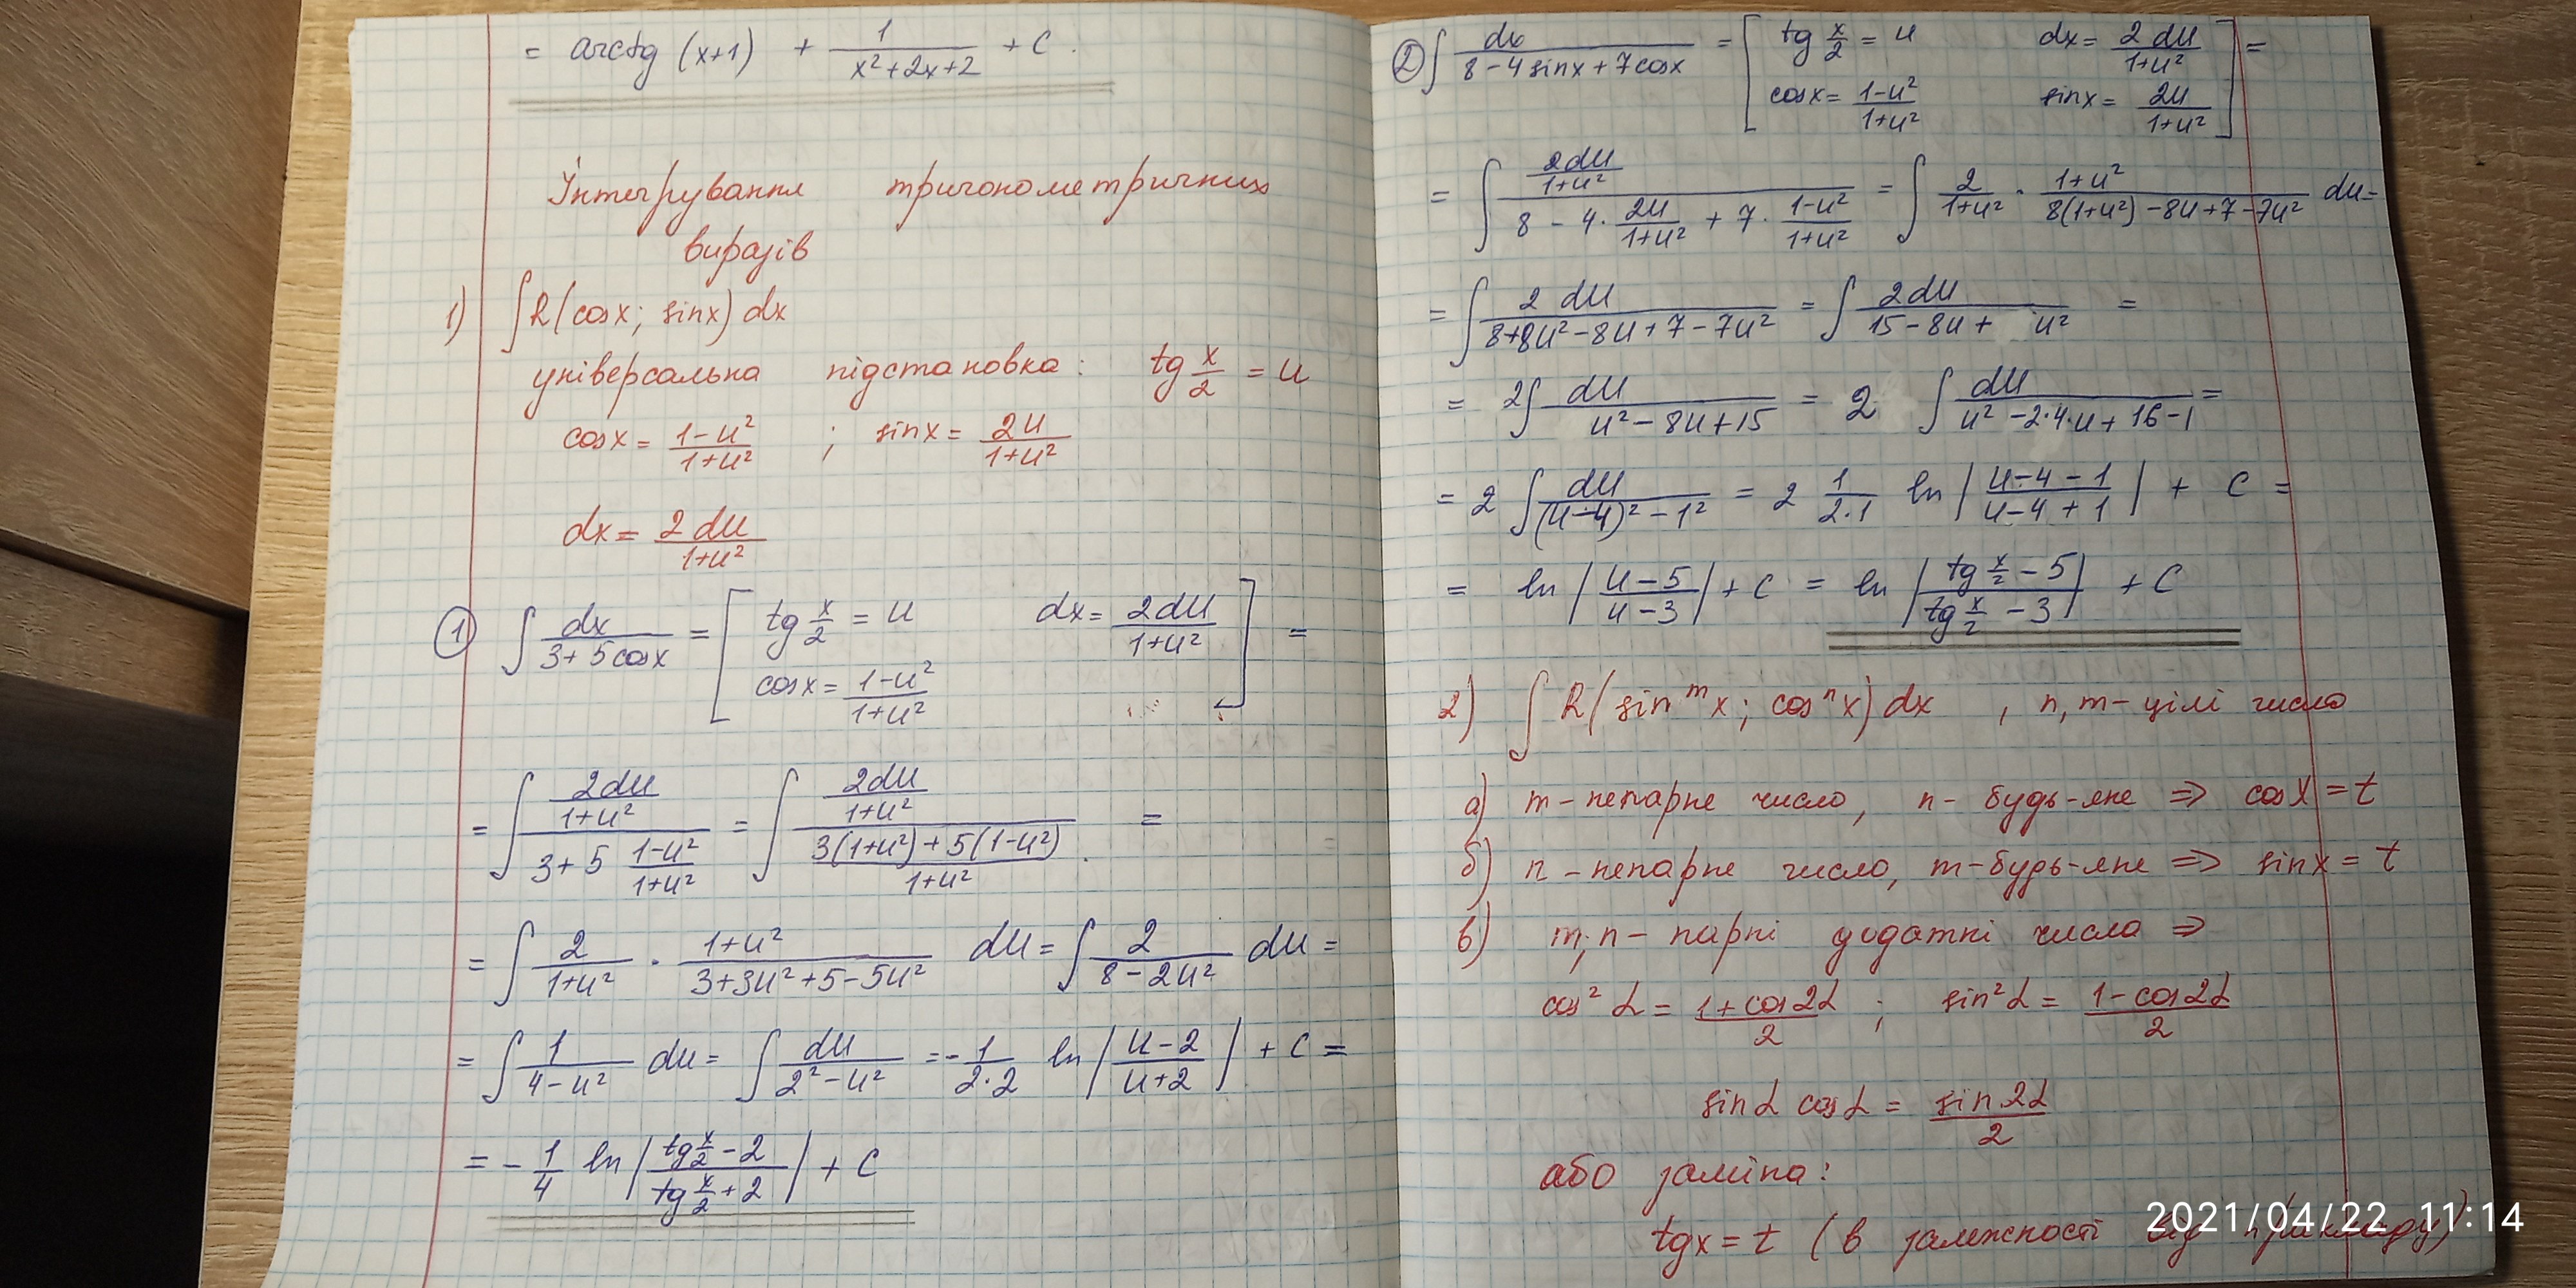 = arctg (x+1) + 1/(x²+2x+2) + C.
Інтегрування тригонометричних
виразів
1) ∫R(cosx; sinx)dx
універсальна підстановка: tg x/2 = u
cosx = (1-u²)/(1+u²) ; sinx = 2u/(1+u²)
dx = 2du/(1+u²)
① ∫ dx/(3+5cosx) = [ tg x/2 = u dx = 2du/(1+u²)
cosx = (1-u²)/(1+u²) ] =
= ∫ (2du/(1+u²))/(3+5 (1-u²)/(1+u²)) = ∫ (2du/(1+u²))/((3(1+u²)+5(1-u²))/(1+u²)) =
= ∫ 2/(1+u²) · (1+u²)/(3+3u²+5-5u²) du = ∫ 2/(8-2u²) du =
= ∫ 1/(4-u²) du = ∫ du/(2²-u²) = -1/(2·2) ln|(u-2)/(u+2)| + C =
= -1/4 ln|(tg x/2 - 2)/(tg x/2 + 2)| + C
② ∫ dx/(8-4sinx+7cosx) = [ tg x/2 = u dx = 2du/(1+u²)
cosx = (1-u²)/(1+u²) sinx = 2u/(1+u²) ] =
= ∫ (2du/(1+u²))/(8 - 4·2u/(1+u²) + 7·(1-u²)/(1+u²)) = ∫ 2/(1+u²) · (1+u²)/(8(1+u²)-8u+7-7u²) du =
= ∫ 2du/(8+8u²-8u+7-7u²) = ∫ 2du/(15-8u+u²) =
= 2∫ du/(u²-8u+15) = 2 ∫ du/(u²-2·4·u+16-1) =
= 2 ∫ du/((u-4)²-1²) = 2 1/(2·1) ln|(u-4-1)/(u-4+1)| + C =
= ln|(u-5)/(u-3)| + C = ln|(tg x/2 - 5)/(tg x/2 - 3)| + C
2) ∫R(sin^m x; cos^n x)dx , n, m - цілі числа
а) m - непарне число, n - будь-яке ⇒ cosx = t
б) n - непарне число, m - будь-яке ⇒ sinx = t
в) m, n - парні додатні числа ⇒
cos²α = (1+cos2α)/2 ; sin²α = (1-cos2α)/2
sinα cosα = sin2α/2
або заміна:
tgx = t (в залежності від прикладу)
2021/04/22 11:14